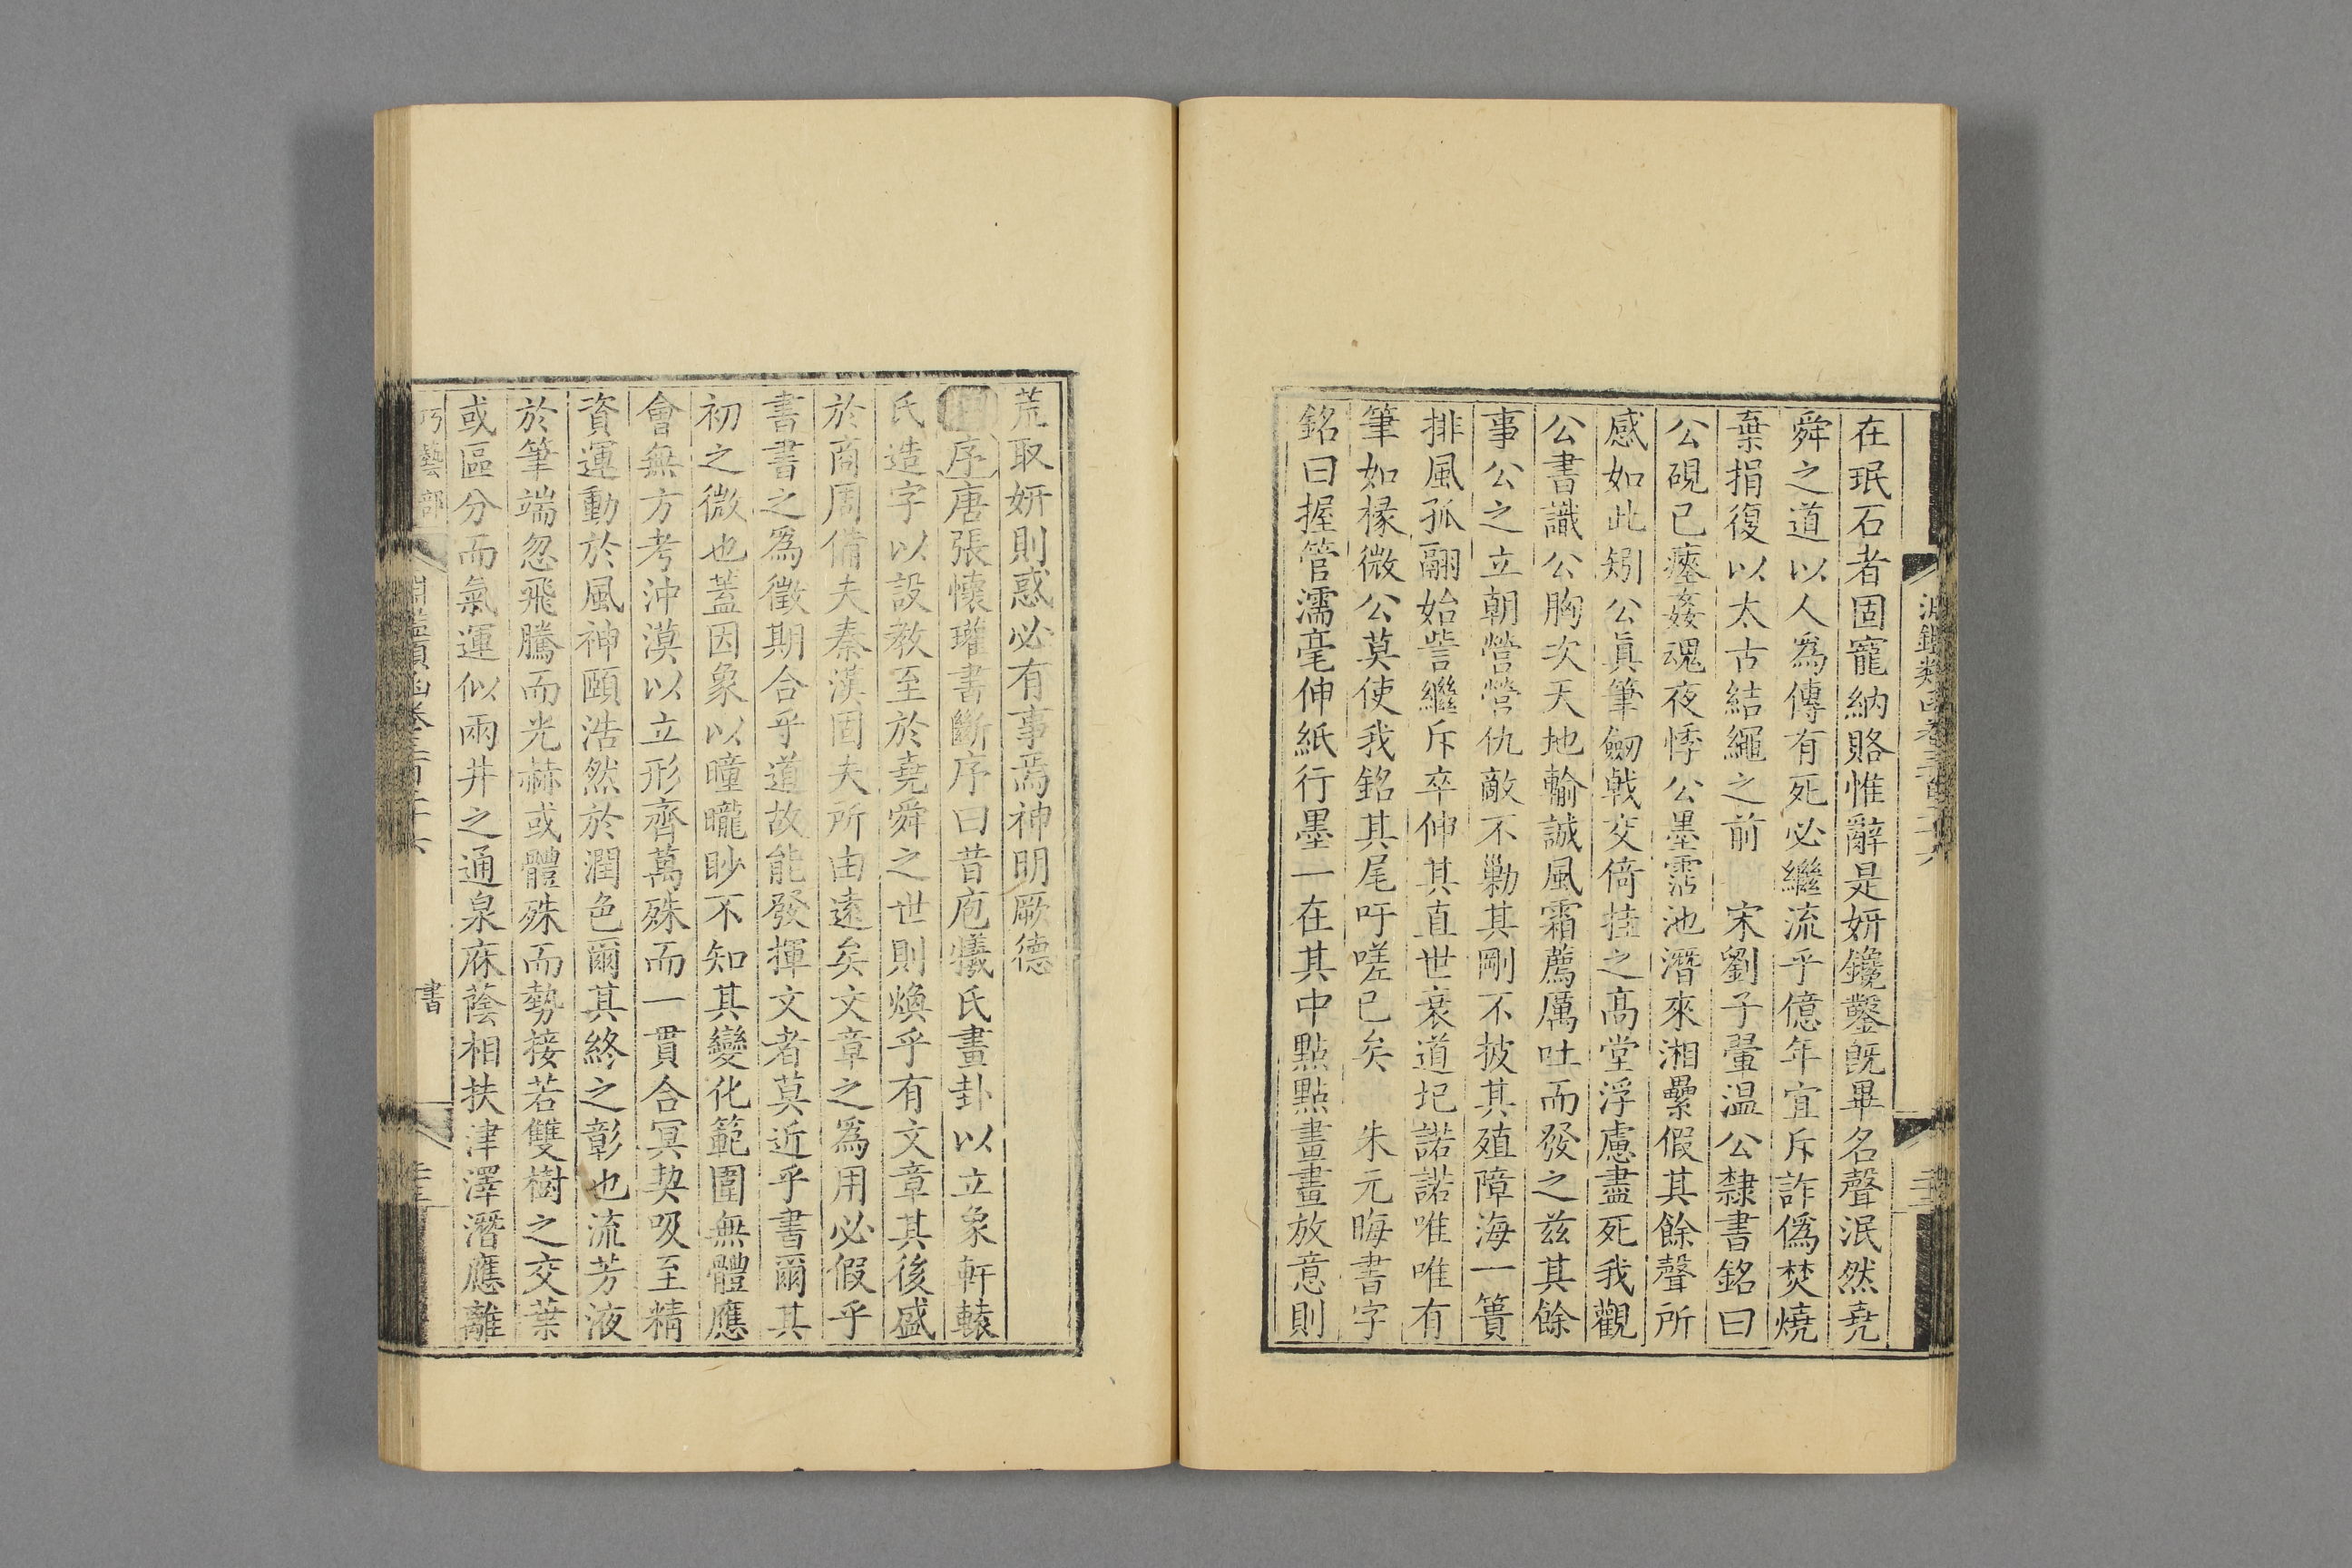 在珉石者固寵納賂惟辭是妍鑱鑿旣畢名聲泯然堯
舜之道以人爲傳有死必繼流乎億年宜斥詐僞焚燒
棄捐復以太古結繩之前 宋劉子翬温公隸書銘曰
公硯已瘞姦魂夜悸公墨霑池潛來湘纍假其餘聲所
感如此矧公眞筆劒戟交倚挂之高堂浮慮盡死我觀
公書識公胸次天地輸誠風霜薦厲吐而發之兹其餘
事公之立朝營營仇敵不勦其剛不披其殖障海一簣
排風孤翮始訾繼斥卒伸其直世衰道圮諾諾唯唯有
筆如椽微公莫使我銘其尾吁嗟已矣 朱元晦書字
銘曰握管濡毫伸紙行墨一在其中點點畫畫放意則
荒取妍則惑必有事焉神明厥德
序唐張懷瓘書斷序曰昔庖犧氏畫卦以立象軒轅
氏造字以設教至於堯舜之世則煥乎有文章其後盛
於商周備夫秦漢固夫所由遠矣文章之爲用必假乎
書書之爲徵期合乎道故能發揮文者莫近乎書爾其
初之微也蓋因象以曈曨眇不知其變化範圍無體應
會無方考沖漠以立形齊萬殊而一貫合冥契吸至精
資運動於風神頤浩然於潤色爾其終之彰也流芳液
於筆端忽飛騰而光赫或體殊而勢接若雙樹之交葉
或區分而氣運似兩井之通泉庥蔭相扶津澤潛應離
巧藝部 書